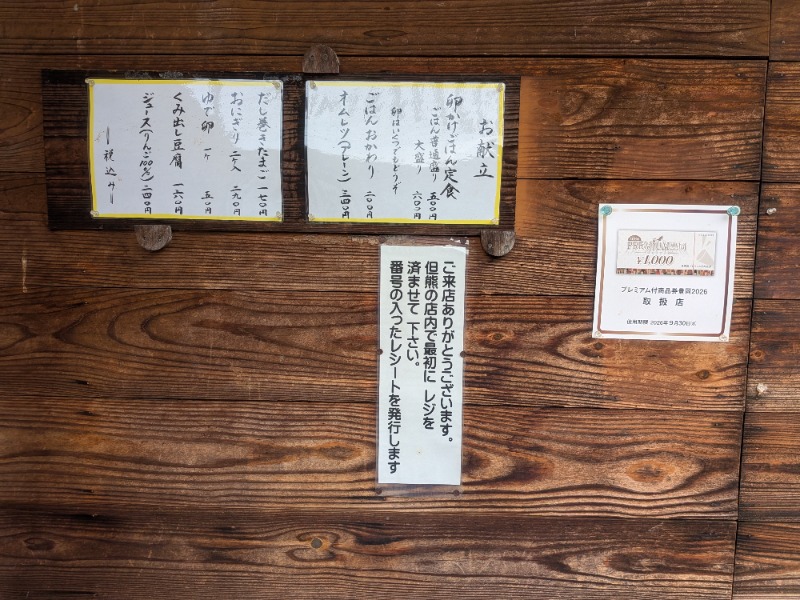 お献立
卵かけごはん定食
ごはん普通盛り 五〇〇円
大盛り 六〇〇円
卵はいくつでもどうぞ
ごはんおかわり 二〇〇円
オムレツ(プレーン) 三四〇円
だし巻きたまご 一七〇円
おにぎり 二ケ入 二九〇円
ゆで卵 一ケ 五〇円
くみ出し豆腐 一六〇円
ジュース(りんご100%) 二四〇円
税込み
ご来店ありがとうございます。
但熊の店内で最初に レジを
済ませて 下さい。
番号の入ったレシートを発行します
¥1,000
プレミアム付商品券豊岡2026
取扱店
使用期間 2026年9月30日迄